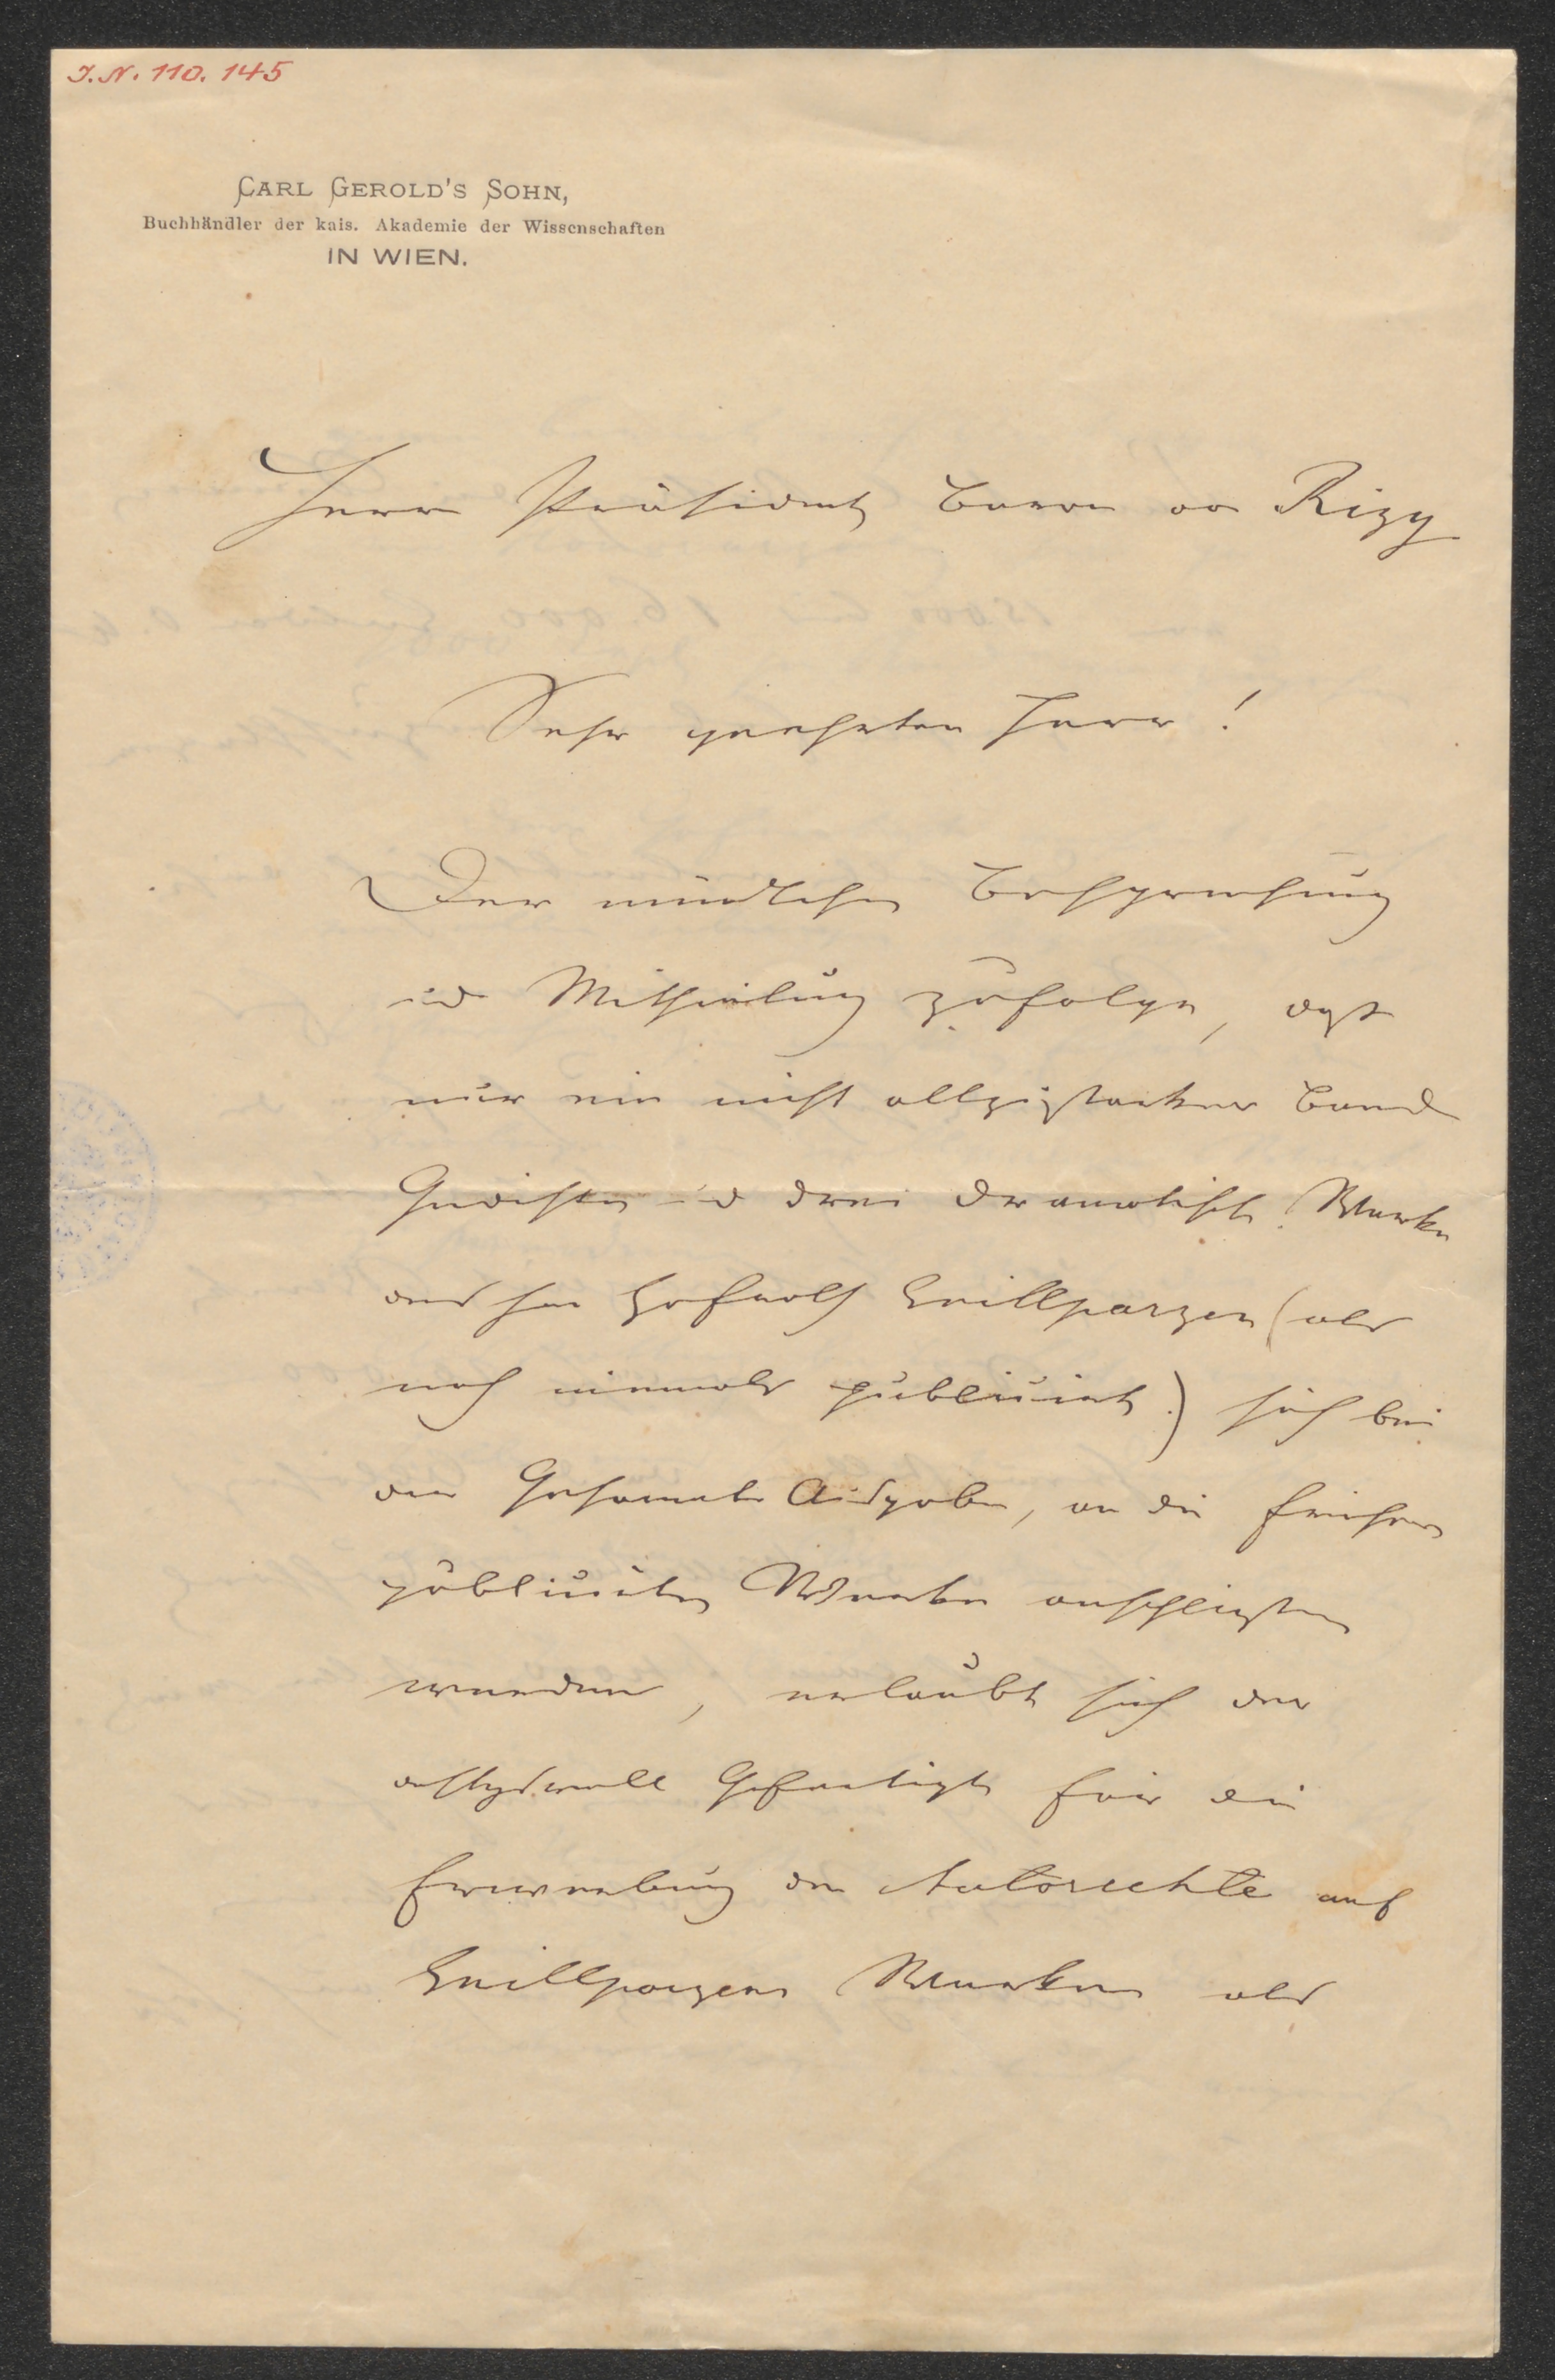 J. N. 110. 145
CARL GEROLD'S SOHN,
Buchhändler der kais. Akademie der Wissenschaften
IN WIEN.
Herr Präsident Baron von Rizy
Sehr geehrter Herr!
Der mündlichen Besprechung
und Mittheilung zufolge, daß
nur ein nicht allzustarker Band
Gedichte und drei dramatische Werke
des Herrn Hofrath Grillparzer (als
noch niemals publicirt) sich bei
der Gesammt Ausgabe, an die früher
publicirten Werke anschließen
werden, erlaubt sich der
achtungsvoll Gefertigte für die
Erwerbung der Autorrechte auf
Grillparzers Werke als